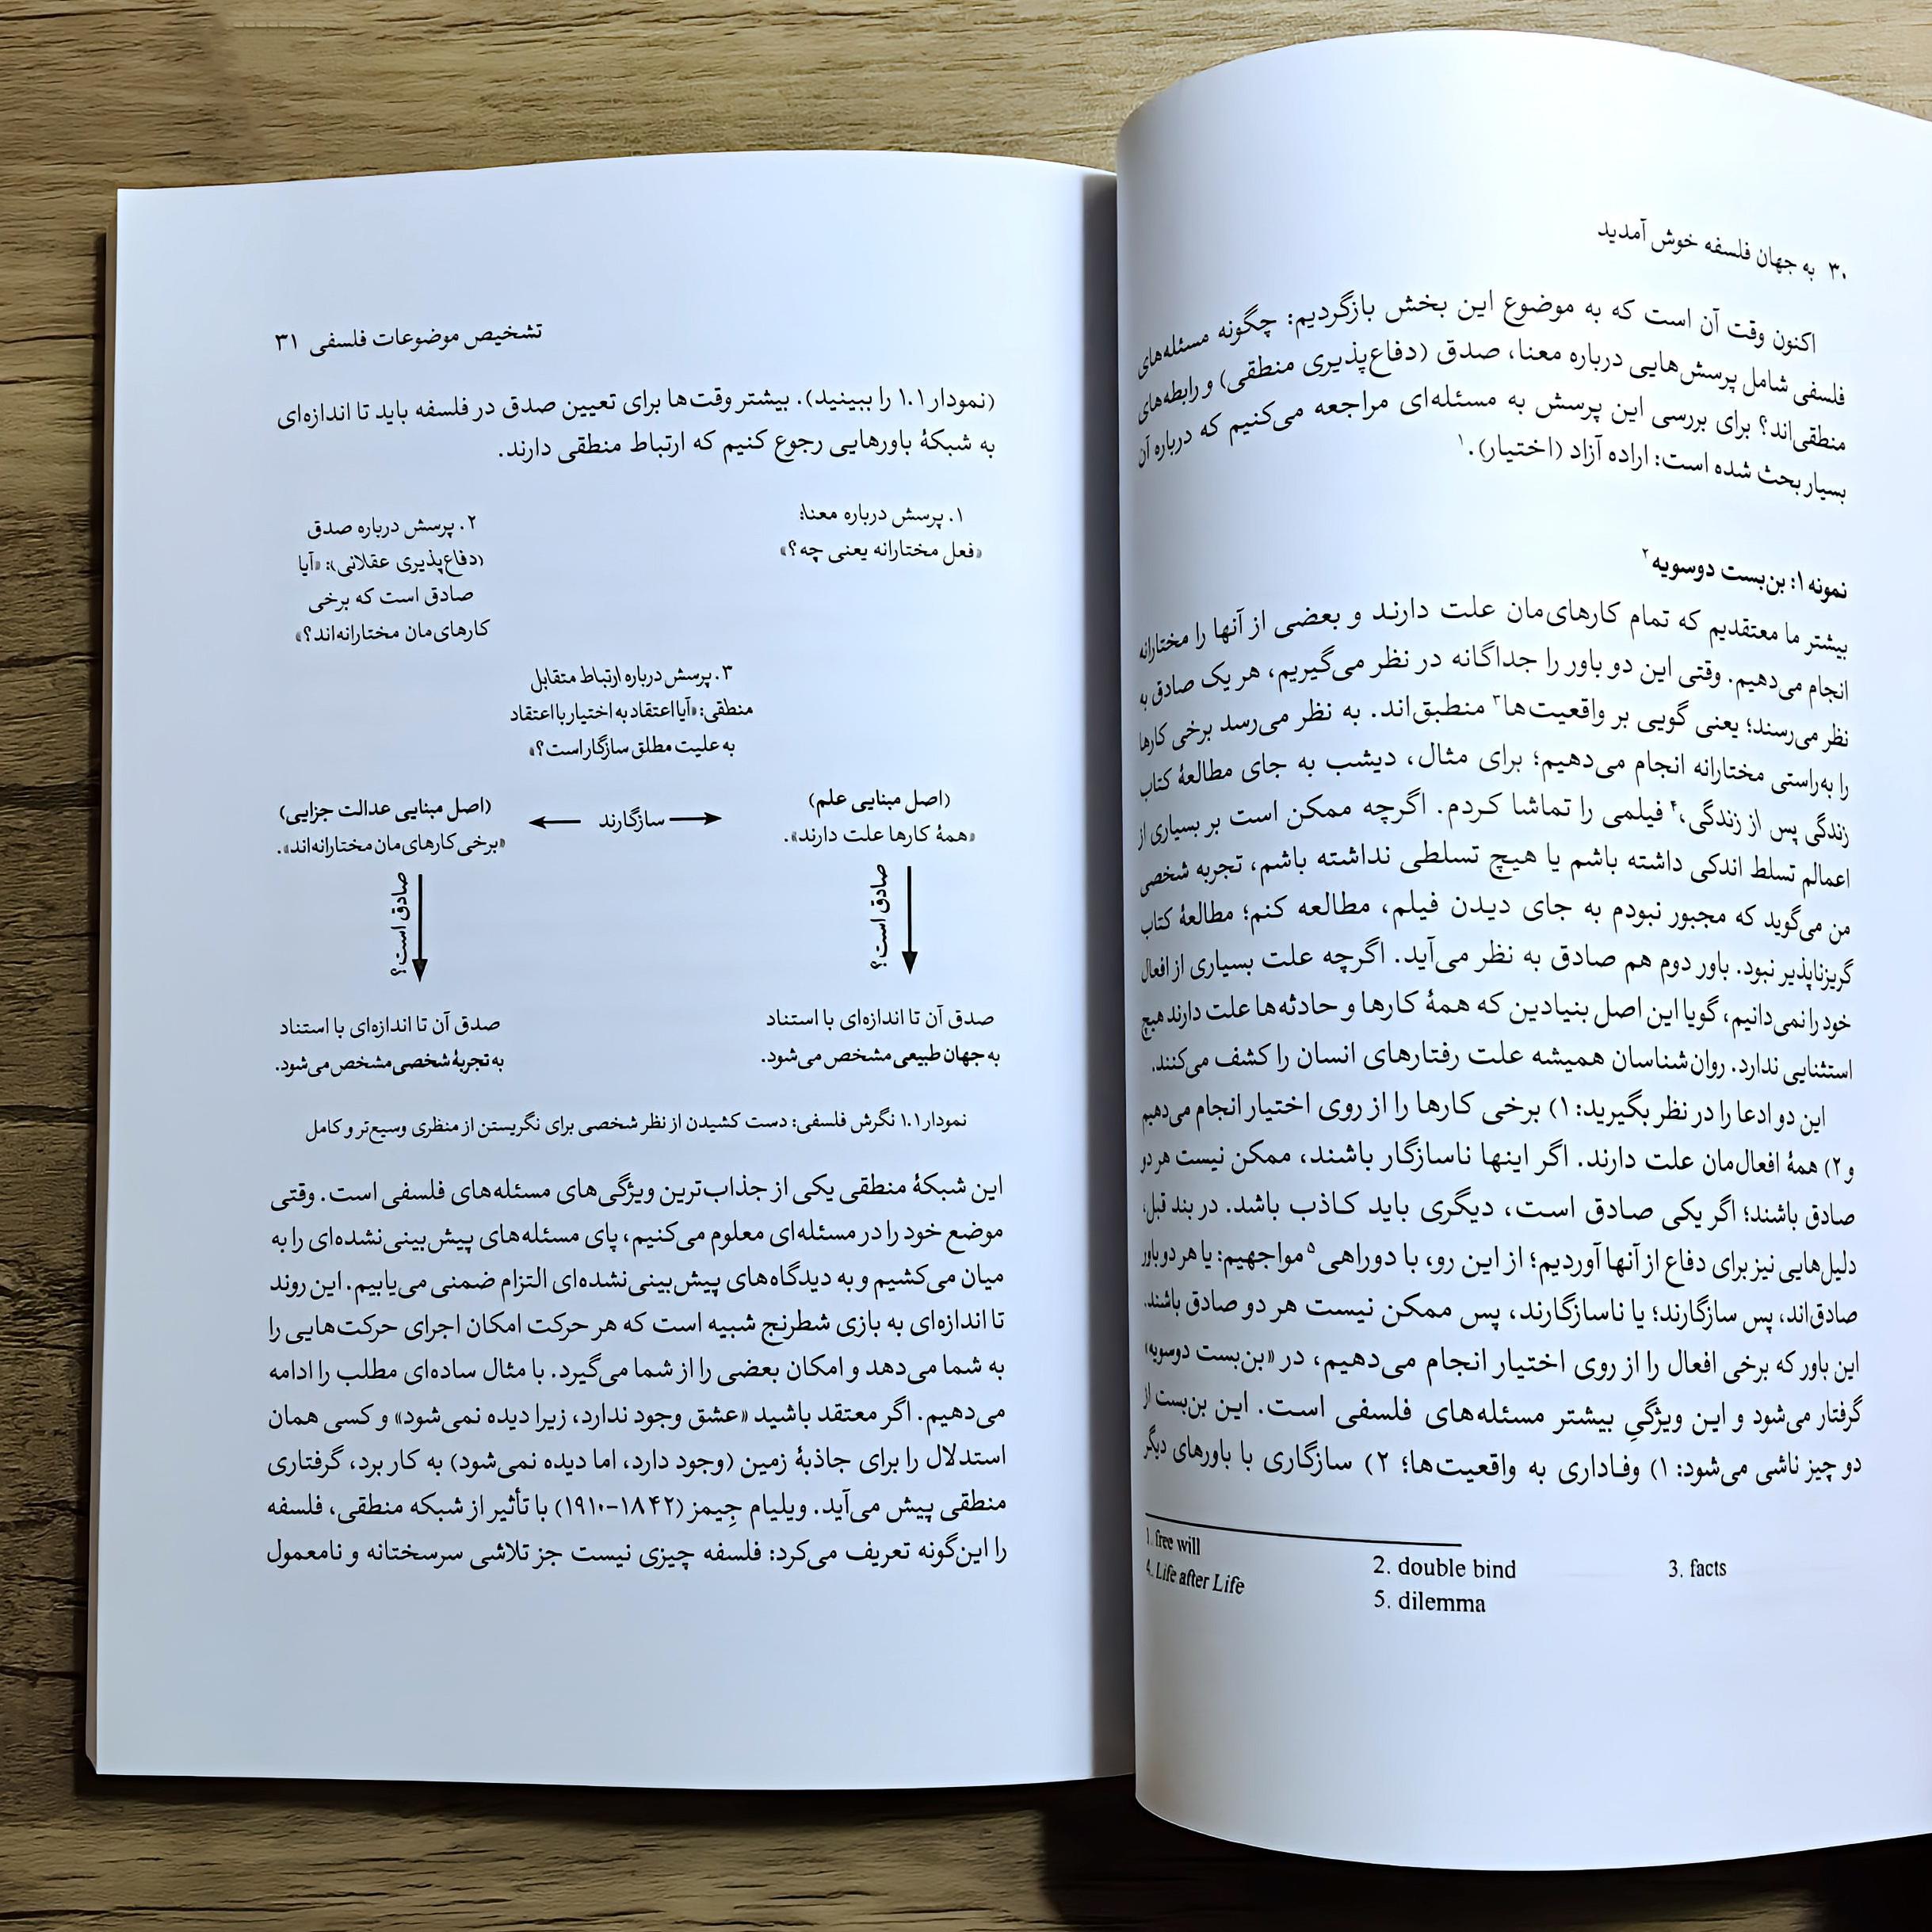 ۳۰ به جهان فلسفه خوش آمدید
اکنون وقت آن است که به موضوع این بخش بازگردیم: چگونه مسئله‌های
فلسفی شامل پرسش‌هایی درباره معنا، صدق (دفاع‌پذیری منطقی) و رابطه‌های
منطقی‌اند؟ برای بررسی این پرسش به مسئله‌ای مراجعه می‌کنیم که درباره آن
بسیار بحث شده است: اراده آزاد (اختیار).۱
نمونه ۱: بن‌بست دوسویه۲
بیشتر ما معتقدیم که تمام کارهای‌مان علت دارند و بعضی از آنها را مختارانه
انجام می‌دهیم. وقتی این دو باور را جداگانه در نظر می‌گیریم، هر یک صادق به
نظر می‌رسند؛ یعنی گویی بر واقعیت‌ها۳ منطبق‌اند. به نظر می‌رسد برخی کارها
را به‌راستی مختارانه انجام می‌دهیم؛ برای مثال، دیشب به جای مطالعهٔ کتاب
زندگی پس از زندگی،۴ فیلمی را تماشا کردم. اگرچه ممکن است بر بسیاری از
اعمالم تسلط اندکی داشته باشم یا هیچ تسلطی نداشته باشم، تجربه شخصی
من می‌گوید که مجبور نبودم به جای دیدن فیلم، مطالعه کنم؛ مطالعهٔ کتاب
گریزناپذیر نبود. باور دوم هم صادق به نظر می‌آید. اگرچه علت بسیاری از افعال
خود را نمی‌دانیم، گویا این اصل بنیادین که همهٔ کارها و حادثه‌ها علت دارند هیچ
استثنایی ندارد. روان‌شناسان همیشه علت رفتارهای انسان را کشف می‌کنند.
این دو ادعا را در نظر بگیرید: ۱) برخی کارها را از روی اختیار انجام می‌دهیم
و ۲) همهٔ افعال‌مان علت دارند. اگر اینها ناسازگار باشند، ممکن نیست هر دو
صادق باشند؛ اگر یکی صادق است، دیگری باید کاذب باشد. در بند قبل،
دلیل‌هایی نیز برای دفاع از آنها آوردیم؛ از این رو، با دوراهی۵ مواجهیم: یا هر دو باور
صادق‌اند، پس سازگارند؛ یا ناسازگارند، پس ممکن نیست هر دو صادق باشند.
این باور که برخی افعال را از روی اختیار انجام می‌دهیم، در «بن‌بست دوسویه»
گرفتار می‌شود و این ویژگیِ بیشتر مسئله‌های فلسفی است. این بن‌بست از
دو چیز ناشی می‌شود: ۱) وفاداری به واقعیت‌ها؛ ۲) سازگاری با باورهای دیگر
1. free will
2. double bind
3. facts
4. Life after Life
5. dilemma
تشخیص موضوعات فلسفی ۳۱
(نمودار ۱.۱ را ببینید). بیشتر وقت‌ها برای تعیین صدق در فلسفه باید تا اندازه‌ای
به شبکهٔ باورهایی رجوع کنیم که ارتباط منطقی دارند.
۱. پرسش درباره معنا:
«فعل مختارانه یعنی چه؟»
۲. پرسش درباره صدق
(دفاع‌پذیری عقلانی): «آیا
صادق است که برخی
کارهای‌مان مختارانه‌اند؟»
۳. پرسش درباره ارتباط متقابل
منطقی: «آیا اعتقاد به اختیار با اعتقاد
به علیت مطلق سازگار است؟»
(اصل مبنایی علم)
«همهٔ کارها علت دارند».
سازگارند
(اصل مبنایی عدالت جزایی)
«برخی کارهای‌مان مختارانه‌اند».
صادق است؟
صادق است؟
صدق آن تا اندازه‌ای با استناد
به جهان طبیعی مشخص می‌شود.
صدق آن تا اندازه‌ای با استناد
به تجربهٔ شخصی مشخص می‌شود.
نمودار ۱.۱ نگرش فلسفی: دست کشیدن از نظر شخصی برای نگریستن از منظری وسیع‌تر و کامل
این شبکهٔ منطقی یکی از جذاب‌ترین ویژگی‌های مسئله‌های فلسفی است. وقتی
موضع خود را در مسئله‌ای معلوم می‌کنیم، پای مسئله‌های پیش‌بینی‌نشده‌ای را به
میان می‌کشیم و به دیدگاه‌های پیش‌بینی‌نشده‌ای التزام ضمنی می‌یابیم. این روند
تا اندازه‌ای به بازی شطرنج شبیه است که هر حرکت امکان اجرای حرکت‌هایی را
به شما می‌دهد و امکان بعضی را از شما می‌گیرد. با مثال ساده‌ای مطلب را ادامه
می‌دهیم. اگر معتقد باشید «عشق وجود ندارد، زیرا دیده نمی‌شود» و کسی همان
استدلال را برای جاذبهٔ زمین (وجود دارد، اما دیده نمی‌شود) به کار برد، گرفتاری
منطقی پیش می‌آید. ویلیام جِیمز (۱۸۴۲-۱۹۱۰) با تأثیر از شبکه منطقی، فلسفه
را این‌گونه تعریف می‌کرد: فلسفه چیزی نیست جز تلاشی سرسختانه و نامعمول